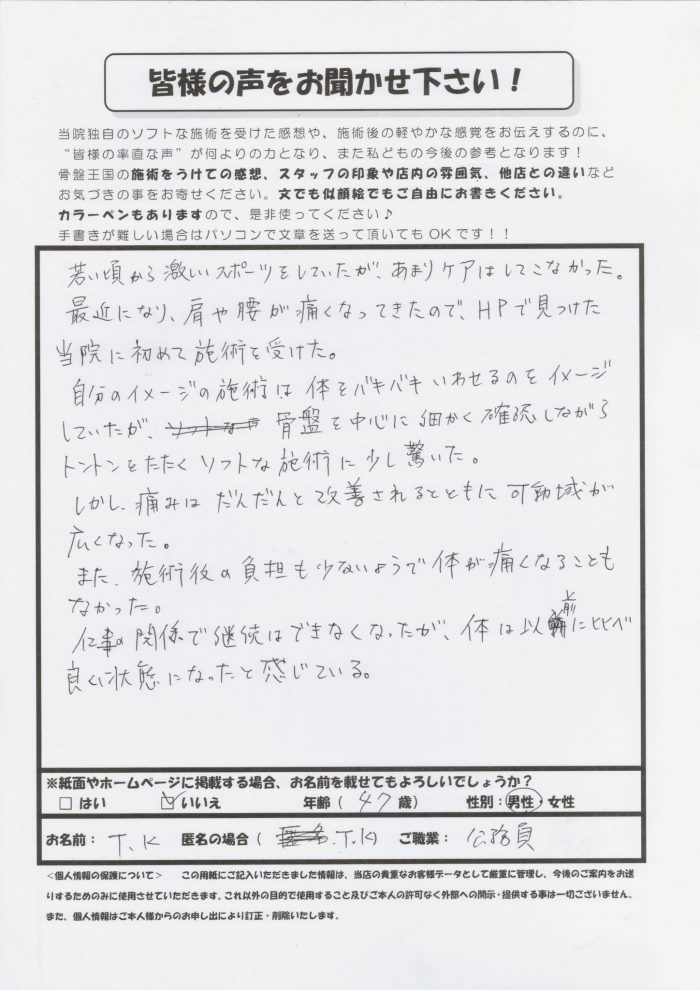 皆様の声をお聞かせ下さい！
当院独自のソフトな施術を受けた感想や、施術後の軽やかな感覚をお伝えするのに、
“皆様の率直な声”が何よりの力となり、また私どもの今後の参考となります！
骨盤王国の施術をうけての感想、スタッフの印象や店内の雰囲気、他店との違いなど
お気づきの事をお寄せください。文でも似顔絵でもご自由にお書きください。
カラーペンもありますので、是非使ってください♪
手書きが難しい場合はパソコンで文章を送って頂いてもOKです！！
若い頃から激しいスポーツをしていたが、あまりケアはしてこなかった。
最近になり、肩や腰が痛くなってきたので、HPで見つけた
当院に初めて施術を受けた。
自分のイメージの施術は体をバキバキいわせるのをイメージ
していたが、ソフトな 骨盤を中心に細かく確認しながら
トントンとたたくソフトな施術に少し驚いた。
しかし、痛みはだんだんと改善されるとともに可動域が
広くなった。
また、施術後の負担も少ないようで体が痛くなることも
なかった。
仕事の関係で継続はできなくなったが、体は以前に比べ
良い状態になったと感じている。
※紙面やホームページに掲載する場合、お名前を載せてもよろしいでしょうか？
□ はい ☑ いいえ 年齢（ 47 歳） 性別：男性・女性
お名前： T.K 匿名の場合（ 匿名 T.K） ご職業： 公務員
＜個人情報の保護について＞ この用紙にご記入いただきました情報は、当店の貴重なお客様データとして厳重に管理し、今後のご案内をお送
りするためのみに使用させていただきます。これ以外の目的で使用すること及びご本人の許可なく外部への開示・提供する事は一切ございません。
また、個人情報はご本人様からのお申し出により訂正・削除いたします。